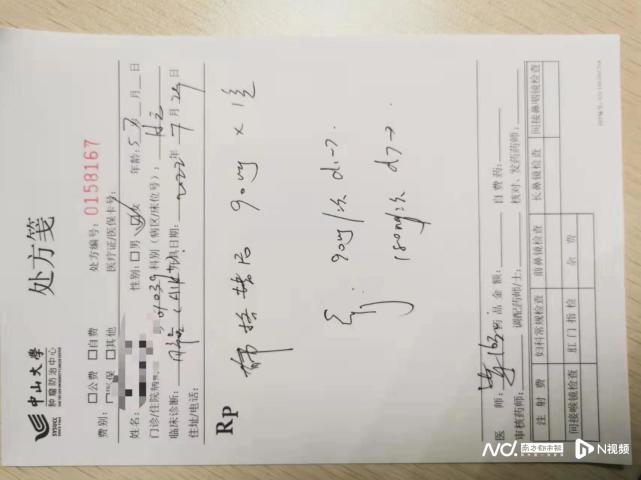 中山大學
肿瘤防治中心
处方笺
费别：□公费 □自费
□其他
处方编号：0158167
医疗证/医保卡号：
姓名：
性别：□男 女 年龄：57
月 日
门诊/住院病 科别（病区/床位号）：
临床诊断： 具日期：2022年7月29日
住址/电话：
Rp
布格替尼 90mg × 1盒
90mg/次 d1-7
180mg/次 d7→
医 师： 药品金额： 自费药：
审核药师： 调配药师/士： 核对、发药药师：
注射费 妇科常规检查 前鼻镜检查 长鼻镜检查 间接鼻咽镜检查
间接喉镜检查 肛门指检 杂费
南方都市报
N视频